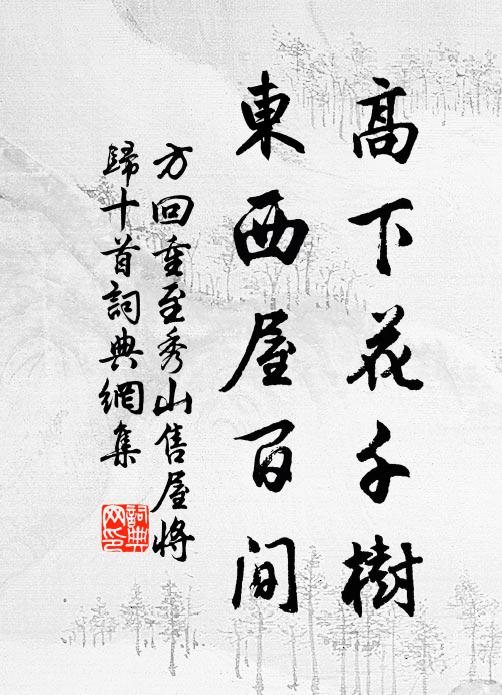 高下花千樹
東西屋百間
方回重至秀山售屋將
歸十首詞典網集
詞典
网印